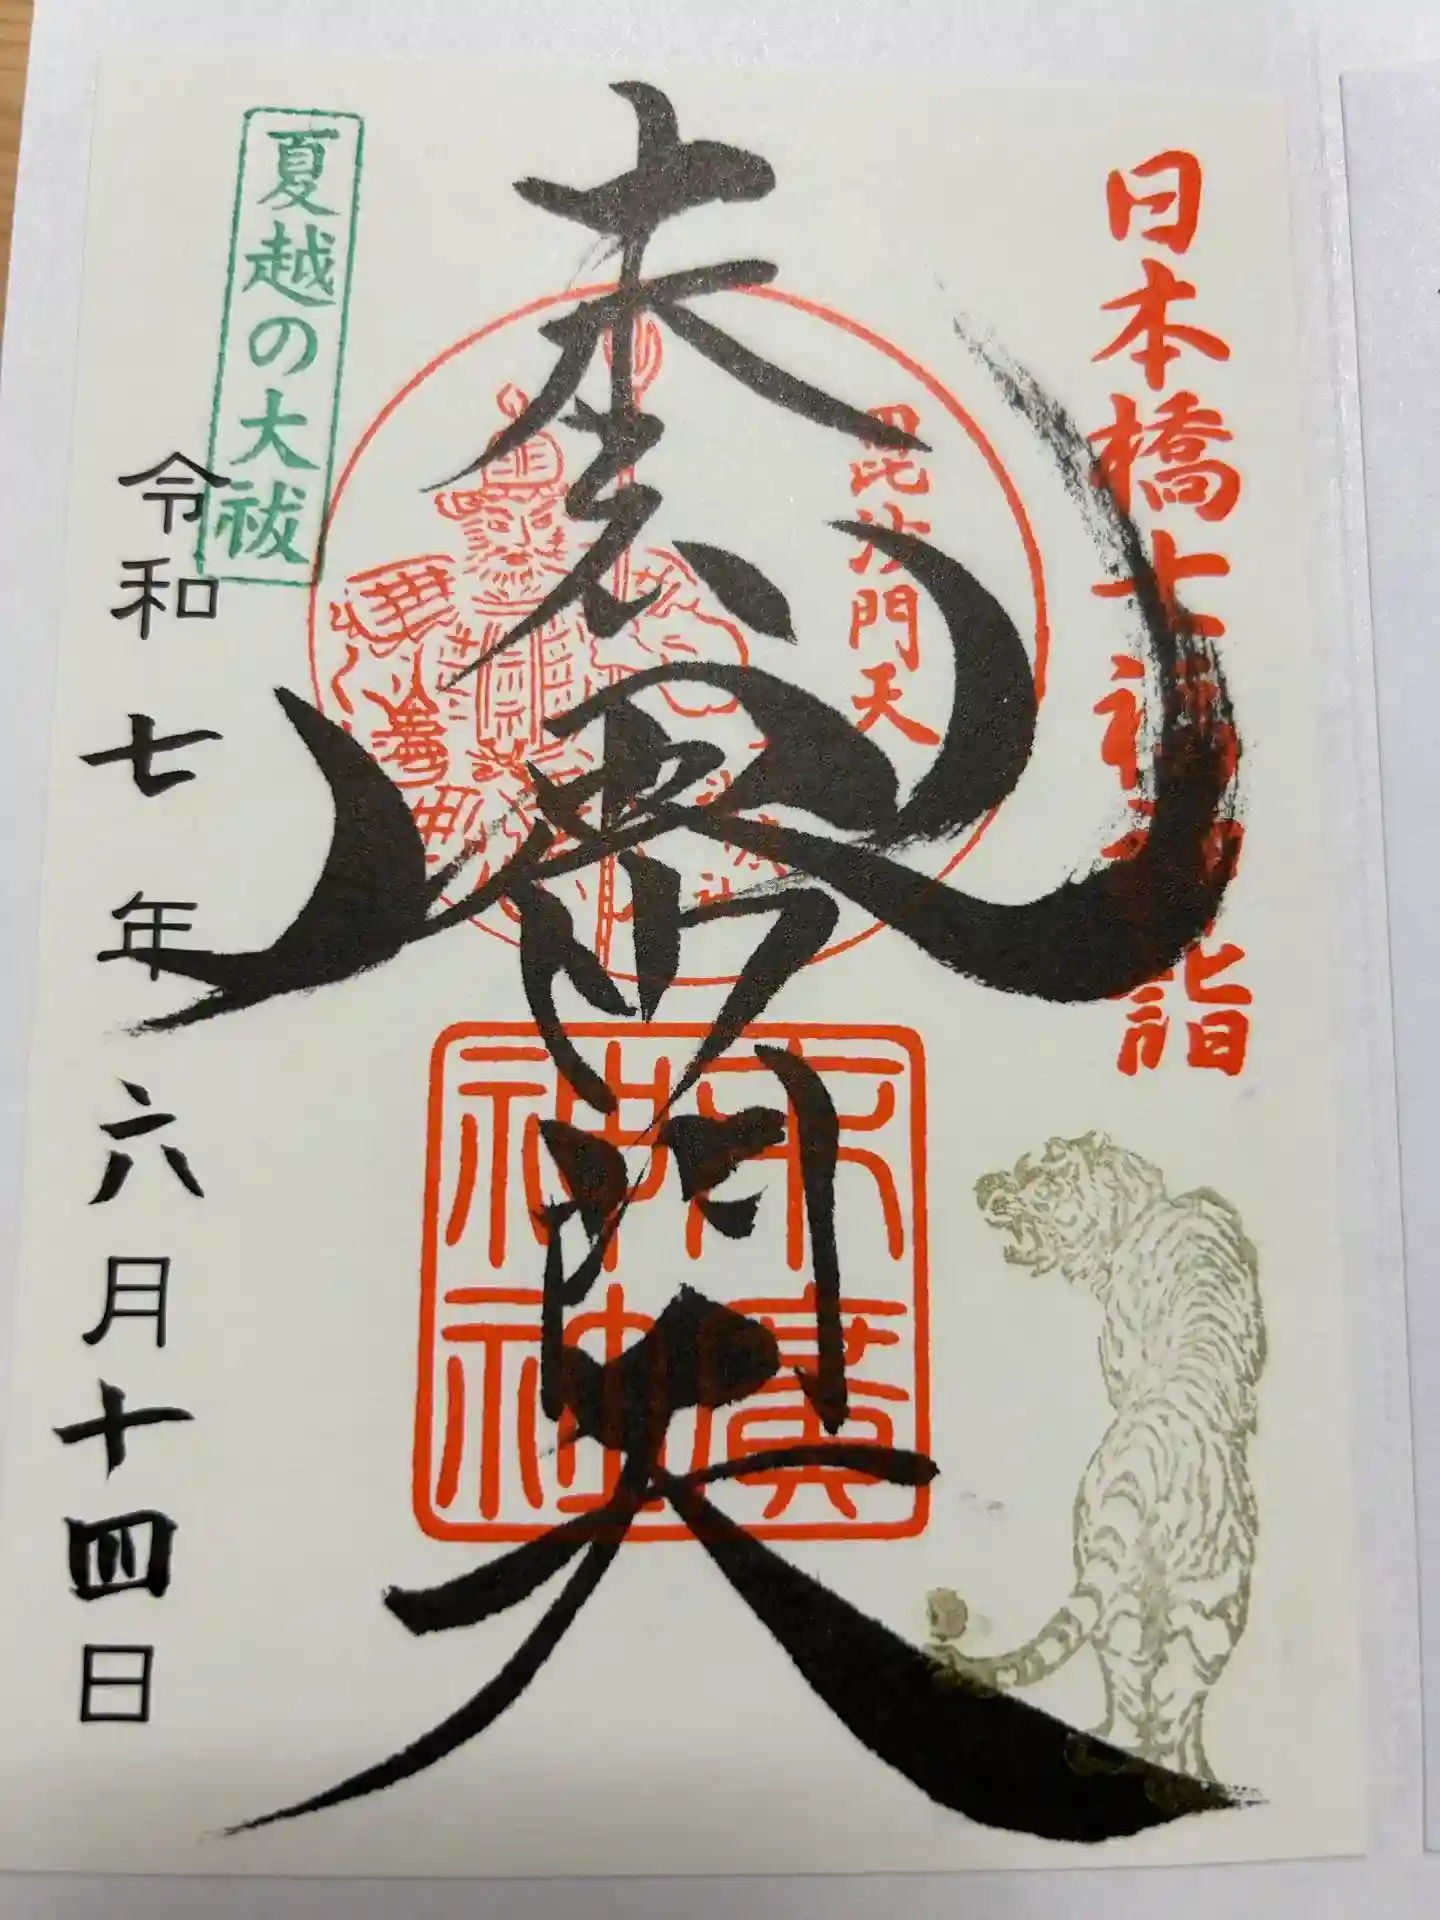 日本橋七福神詣
毘沙門天
毘沙門天
末廣
神社
夏越の大祓
令和七年六月十四日